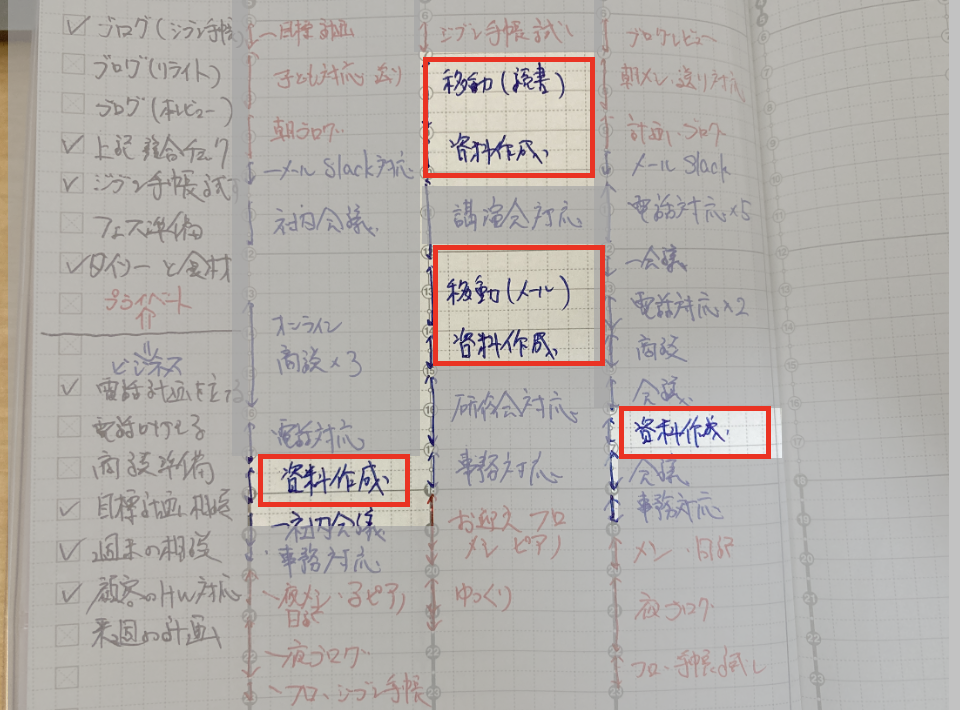 ブログ(ジブン手帳)
ブログ(リライト)
ブログ(本レビュー)
上記 競合チェック
ジブン手帳試し
フェス準備
ダイソーと食材
プライベート
ビジネス
電話計画を立てる
電話かける
商談準備
目標計画 相談
週末の相談
顧客のHW対応
来週の計画
目標計画
子ども対応 送り
朝ブログ
メール Slack対応
社内会議
オンライン
商談×3
電話対応
資料作成
社内会議
事務対応
夜メシ・子ピアノ
日記
夜ブログ
フロ、ジブン手帳
ジブン手帳試し
移動(読書)
資料作成
講演会対応
移動(メール)
資料作成
研修会対応
事務対応
お迎え フロ
メシ ピアノ
ゆっくり
ブログレビュー
朝メシ・送り対応
計画・ブログ
メール Slack
電話対応×5
会議
電話対応×2
商談
会議
資料作成
会議
事務対応
メシ・日記
夜ブログ
フロ・手帳試し